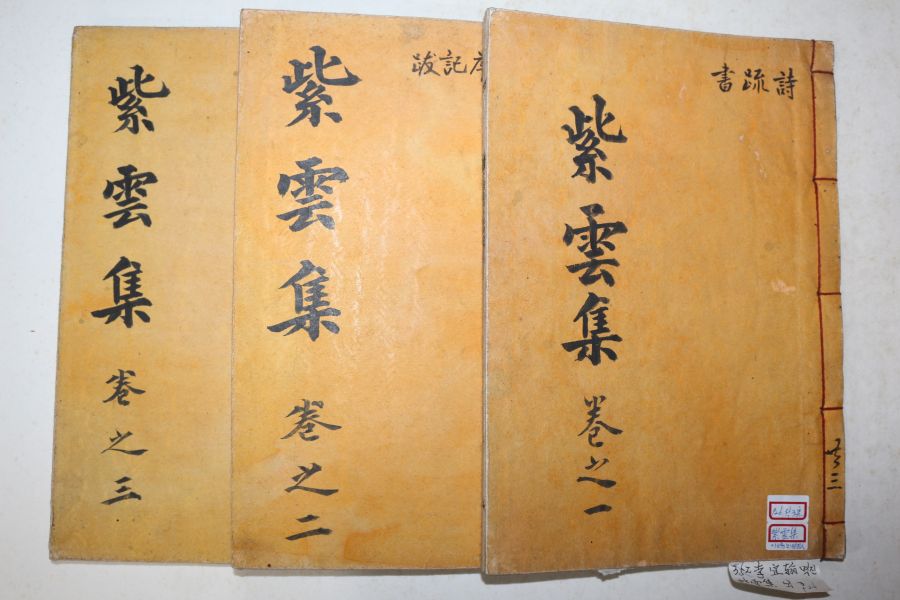 詩疏書
紫雲集 卷之一
共三
紫雲集
記跋
紫雲集 卷之二
紫雲集 卷之三
李宜翰